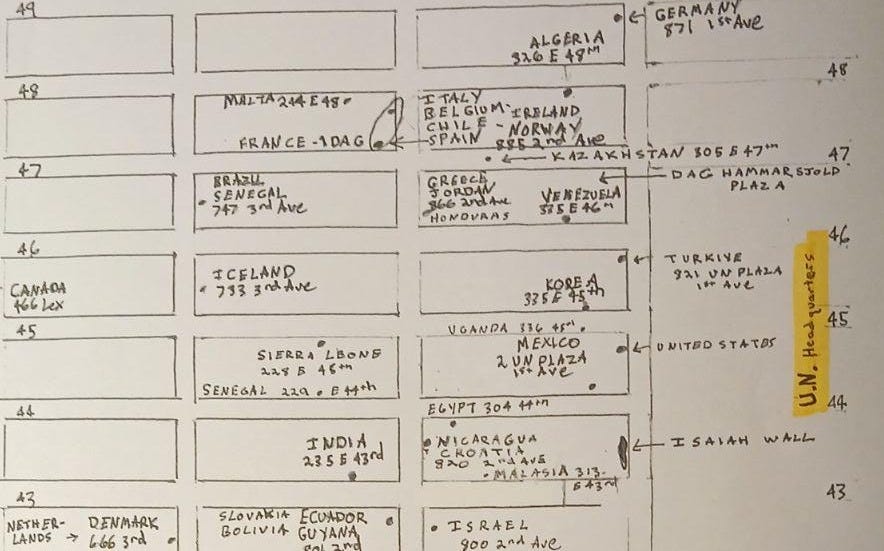 49
GERMANY
871 1st Ave
ALGERIA
326 E 48th
48
48
MALTA 244 E 48
FRANCE - 1 DAG
ITALY
BELGIUM - IRELAND
CHILE - NORWAY
SPAIN 885 2nd Ave
KAZAKHSTAN 305 E 47th
47
47
DAG HAMMARSJOLD
PLAZA
BRAZIL
SENEGAL
747 3rd Ave
GREECE
JORDAN
866 2nd Ave
HONDURAS
VENEZUELA
335 E 46th
46
46
TURKIYE
821 UN PLAZA
1st Ave
CANADA
466 Lex
ICELAND
733 3rd Ave
KOREA
335 E 45th
U.N. Headquarters
45
45
UGANDA 336 45th
SIERRA LEONE
228 E 45th
SENEGAL 229 E 44th
MEXICO
2 UN PLAZA
1st Ave
UNITED STATES
44
44
EGYPT 304 44th
INDIA
235 E 43rd
NICARAGUA
CROATIA
820 2nd Ave
MALASIA 313
E 43rd
ISAIAH WALL
43
43
NETHER-
LANDS → DENMARK
666 3rd
SLOVAKIA ECUADOR
BOLIVIA GUYANA
801 2nd
ISRAEL
800 2nd Ave